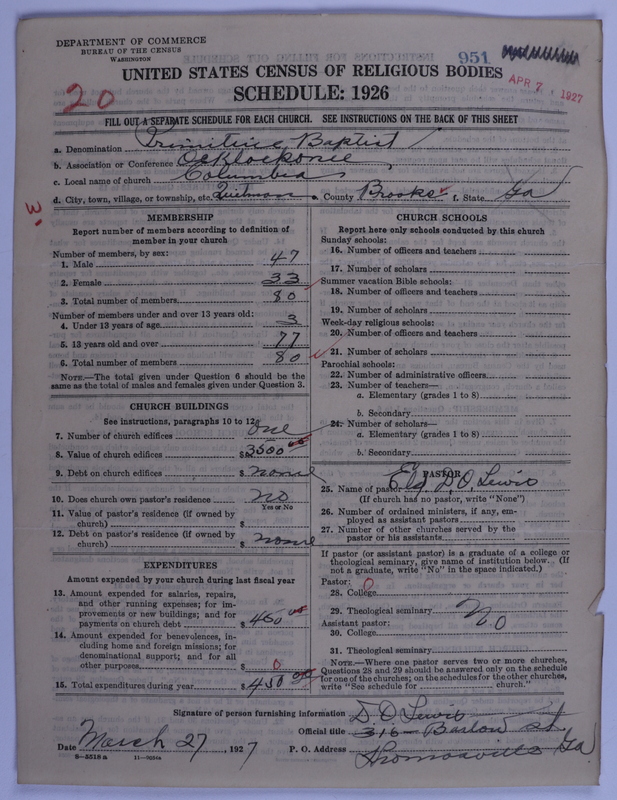 DEPARTMENT OF COMMERCE
BUREAU OF THE CENSUS
WASHINGTON
951
UNITED STATES CENSUS OF RELIGIOUS BODIES
APR 7 1927
20
SCHEDULE: 1926
FILL OUT A SEPARATE SCHEDULE FOR EACH CHURCH. SEE INSTRUCTIONS ON THE BACK OF THIS SHEET
a. Denomination Primitive Baptist
b. Association or Conference Ocklockonie
c. Local name of church Columbia
d. City, town, village, or township, etc. Quitman e. County Brooks f. State Ga
MEMBERSHIP
Report number of members according to definition of
member in your church
Number of members, by sex:
1. Male 47
2. Female 33
3. Total number of members 80
Number of members under and over 13 years old:
4. Under 13 years of age 3
5. 13 years old and over 77
6. Total number of members 80
NOTE.—The total given under Question 6 should be the
same as the total of males and females given under Question 3.
CHURCH BUILDINGS
See instructions, paragraphs 10 to 12
7. Number of church edifices one
8. Value of church edifices $ 3500 00
9. Debt on church edifices $ none
10. Does church own pastor's residence no
Yes or No
11. Value of pastor's residence (if owned by
church) $
12. Debt on pastor's residence (if owned by
church) $ none
EXPENDITURES
Amount expended by your church during last fiscal year
13. Amount expended for salaries, repairs,
and other running expenses; for im-
provements or new buildings; and for
payments on church debt $
14. Amount expended for benevolences, in-
cluding home and foreign missions; for
denominational support; and for all
other purposes $ 0
15. Total expenditures during year $ 450 00
CHURCH SCHOOLS
Report here only schools conducted by this church
Sunday schools:
16. Number of officers and teachers
17. Number of scholars
Summer vacation Bible schools:
18. Number of officers and teachers
19. Number of scholars
Week-day religious schools:
20. Number of officers and teachers
21. Number of scholars
Parochial schools:
22. Number of administrative officers
23. Number of teachers—
a. Elementary (grades 1 to 8)
b. Secondary
24. Number of scholars—
a. Elementary (grades 1 to 8)
b. Secondary
PASTOR
25. Name of pastor Eld. D. O. Lewis
(If church has no pastor, write "None")
26. Number of ordained ministers, if any, em-
ployed as assistant pastors
27. Number of other churches served by the
pastor or his assistants
If pastor (or assistant pastor) is a graduate of a college or
theological seminary, give name of institution below. (If
not a graduate, write "No" in the space indicated.)
Pastor: 0
28. College
29. Theological seminary No
Assistant pastor:
30. College
31. Theological seminary
NOTE.—Where one pastor serves two or more churches,
Questions 28 and 29 should be answered only on the schedule
for one of the churches; on the schedules for the other churches,
write "See schedule for church."
Signature of person furnishing information D. O. Lewis
Official title 316 — Barlow St
Date March 27, 1927 P. O. Address Thomasville Ga
8-5518a